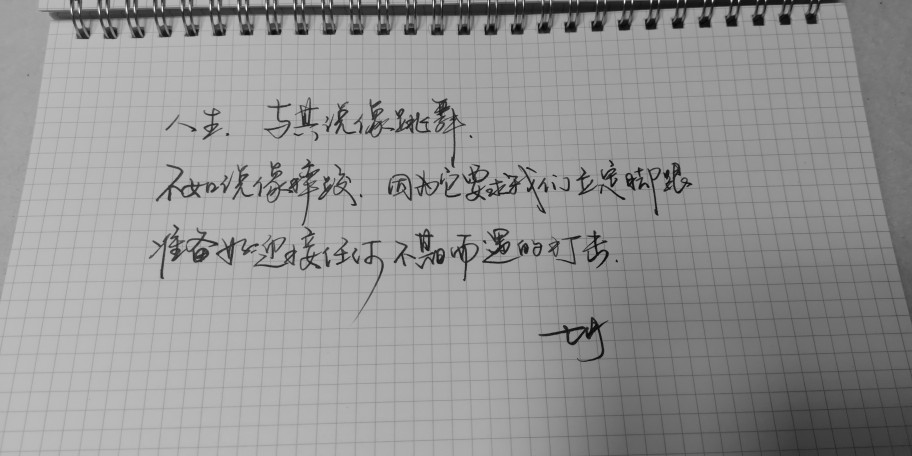 人生，与其说像跳舞，
不如说像摔跤，因为它要求我们立定脚跟
准备好迎接任何不期而遇的打击。